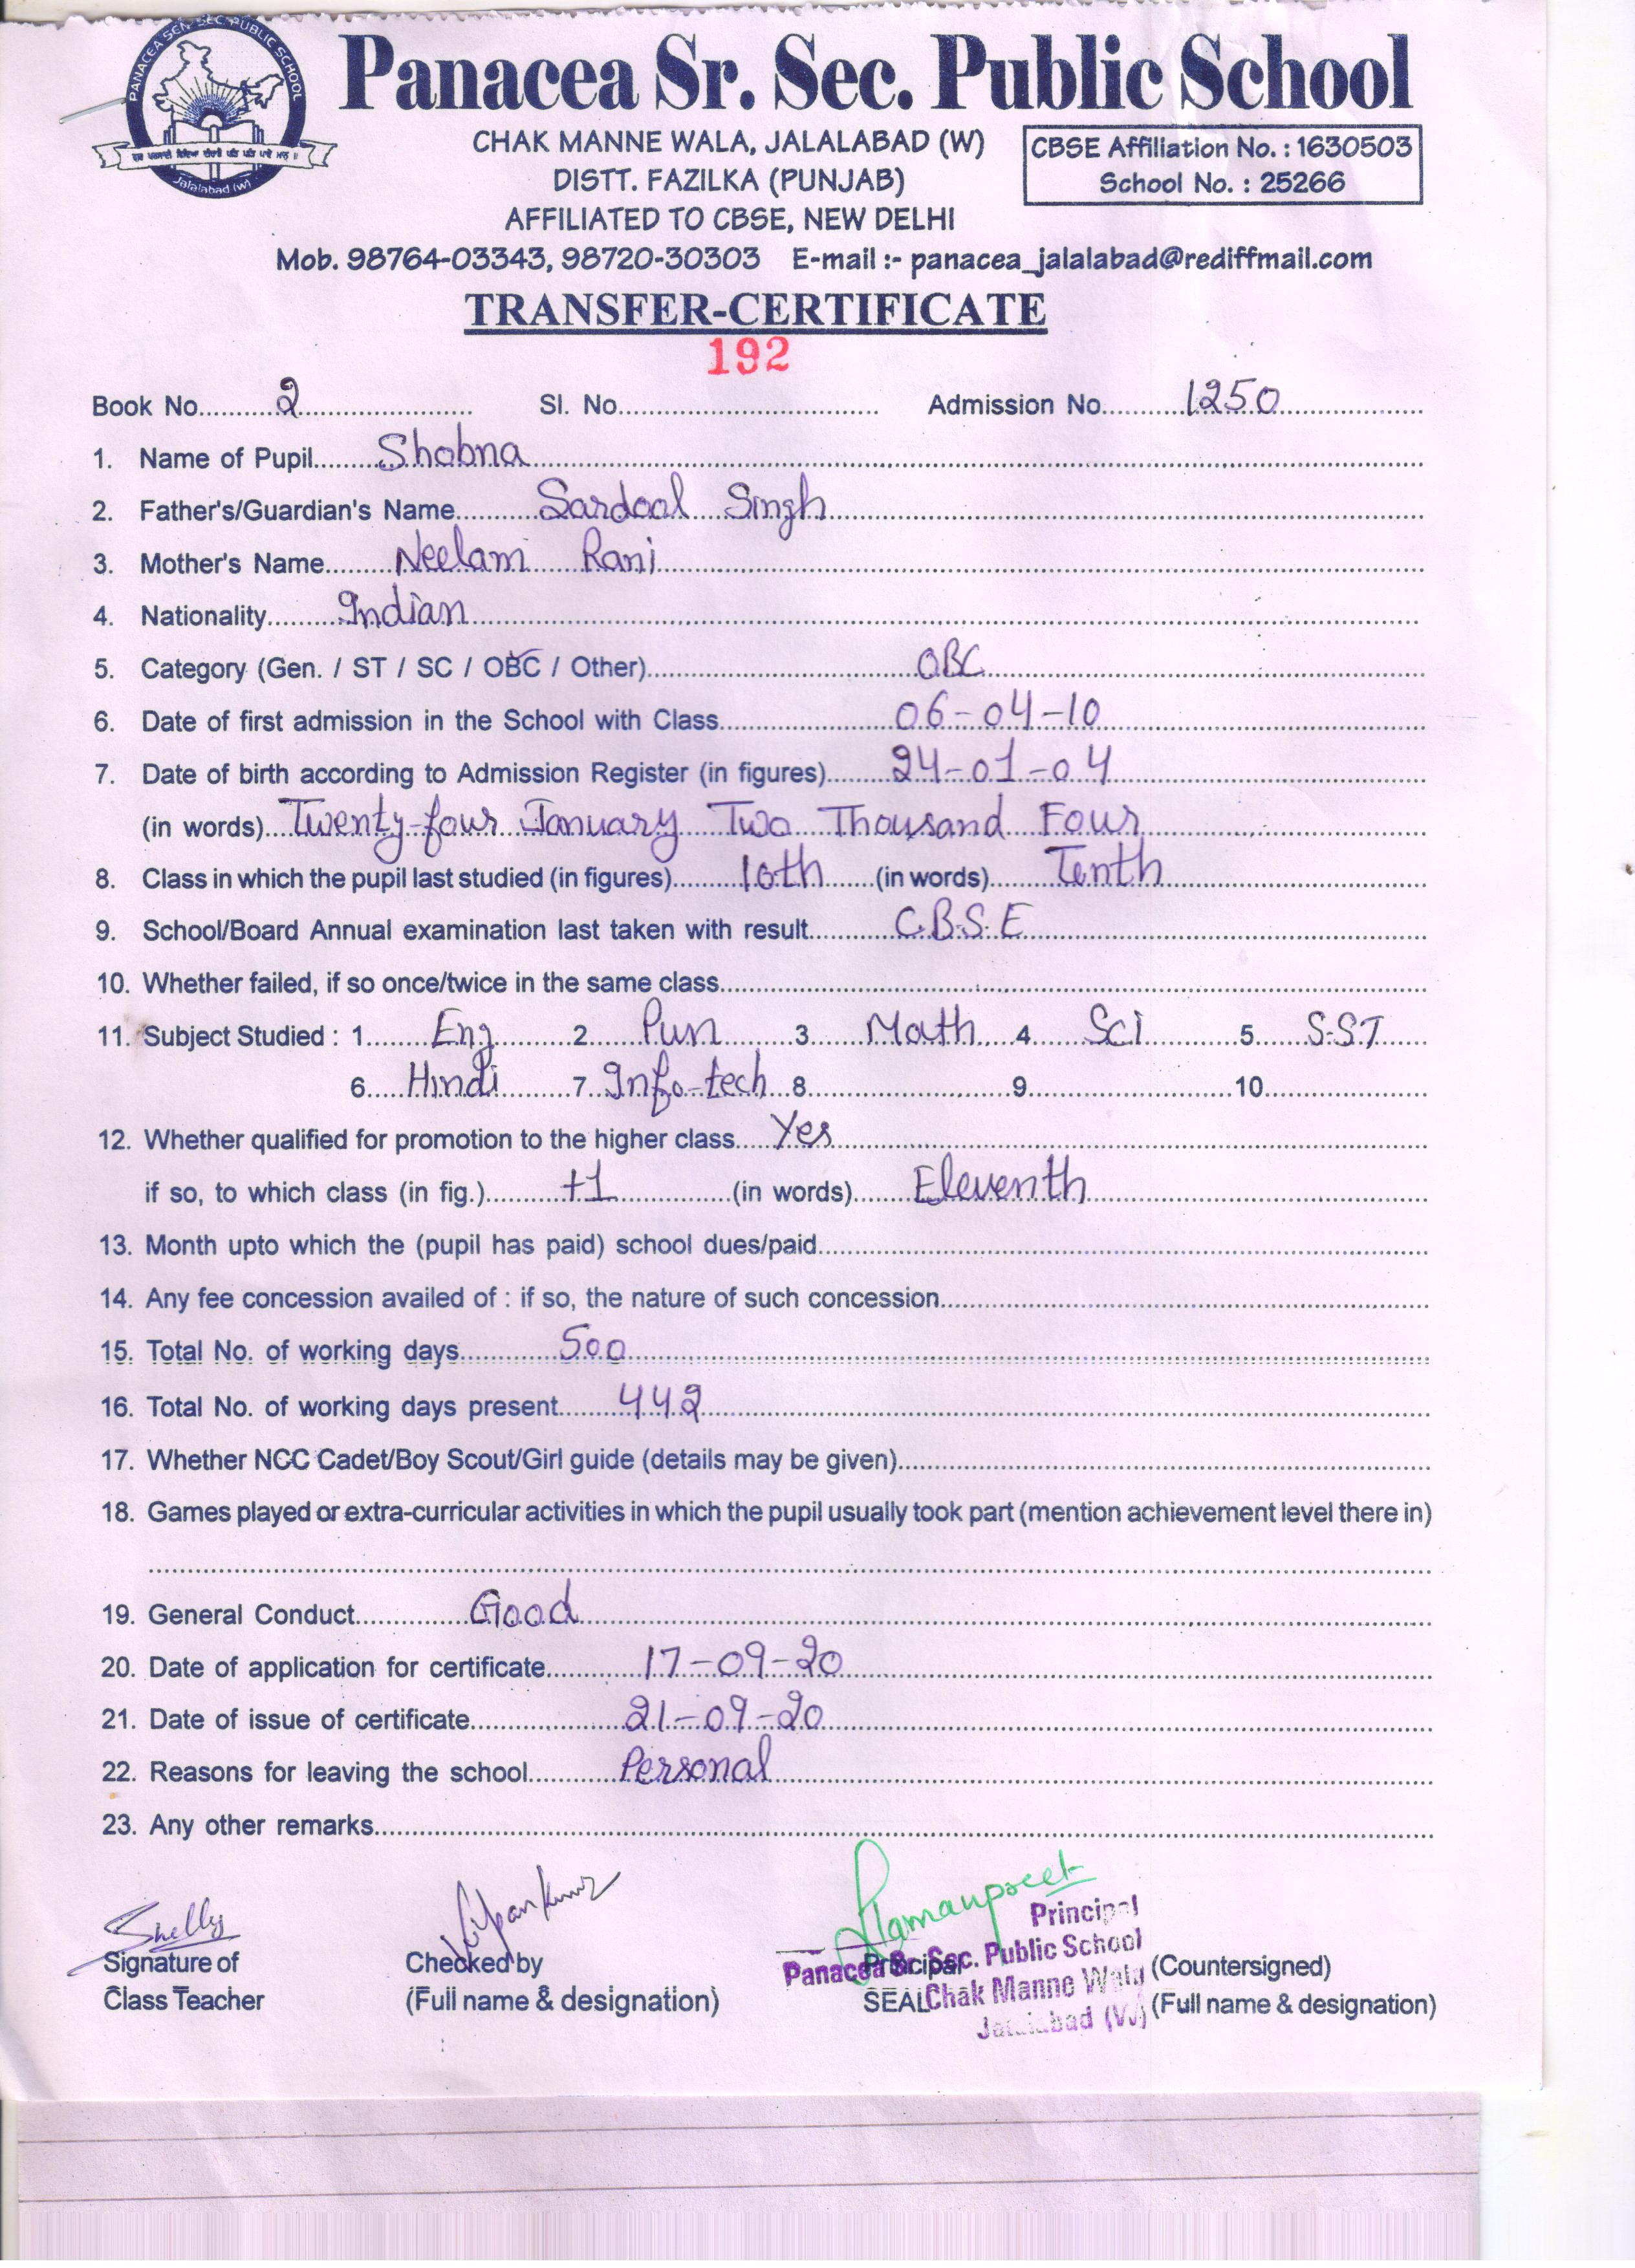 PANACEA SEN SEC PUBLIC SCHOOL
Jalalabad (w)
Panacea Sr. Sec. Public School
CHAK MANNE WALA, JALALABAD (W)
CBSE Affiliation No. : 1630503
DISTT. FAZILKA (PUNJAB)
School No. : 25266
AFFILIATED TO CBSE, NEW DELHI
Mob. 98764-03343, 98720-30303 E-mail :- panacea_jalalabad@rediffmail.com
TRANSFER-CERTIFICATE
192
Book No. 2 Sl. No. Admission No. 1250
1. Name of Pupil Shobna
2. Father's/Guardian's Name Sardool Singh
3. Mother's Name Neelam Rani
4. Nationality Indian
5. Category (Gen. / ST / SC / OBC / Other) OBC
6. Date of first admission in the School with Class 06-04-10
7. Date of birth according to Admission Register (in figures) 24-01-04
(in words) Twenty-four January Two Thousand Four
8. Class in which the pupil last studied (in figures) 10th (in words) Tenth
9. School/Board Annual examination last taken with result C.B.S.E
10. Whether failed, if so once/twice in the same class
11. Subject Studied : 1 Eng 2 Pun 3 Math 4 Sci 5 S.ST
6 Hindi 7 Info-tech 8 9 10
12. Whether qualified for promotion to the higher class Yes
if so, to which class (in fig.) +1 (in words) Eleventh
13. Month upto which the (pupil has paid) school dues/paid
14. Any fee concession availed of : if so, the nature of such concession
15. Total No. of working days 500
16. Total No. of working days present 442
17. Whether NCC Cadet/Boy Scout/Girl guide (details may be given)
18. Games played or extra-curricular activities in which the pupil usually took part (mention achievement level there in)
19. General Conduct Good
20. Date of application for certificate 17-09-20
21. Date of issue of certificate 21-09-20
22. Reasons for leaving the school Personal
23. Any other remarks
Shelly
Signature of
Class Teacher
Checked by
(Full name & designation)
Principal
SEAL
Principal
Panacea Sr. Sec. Public School
Chak Manne Wala
Jalalabad (W)
(Countersigned)
(Full name & designation)